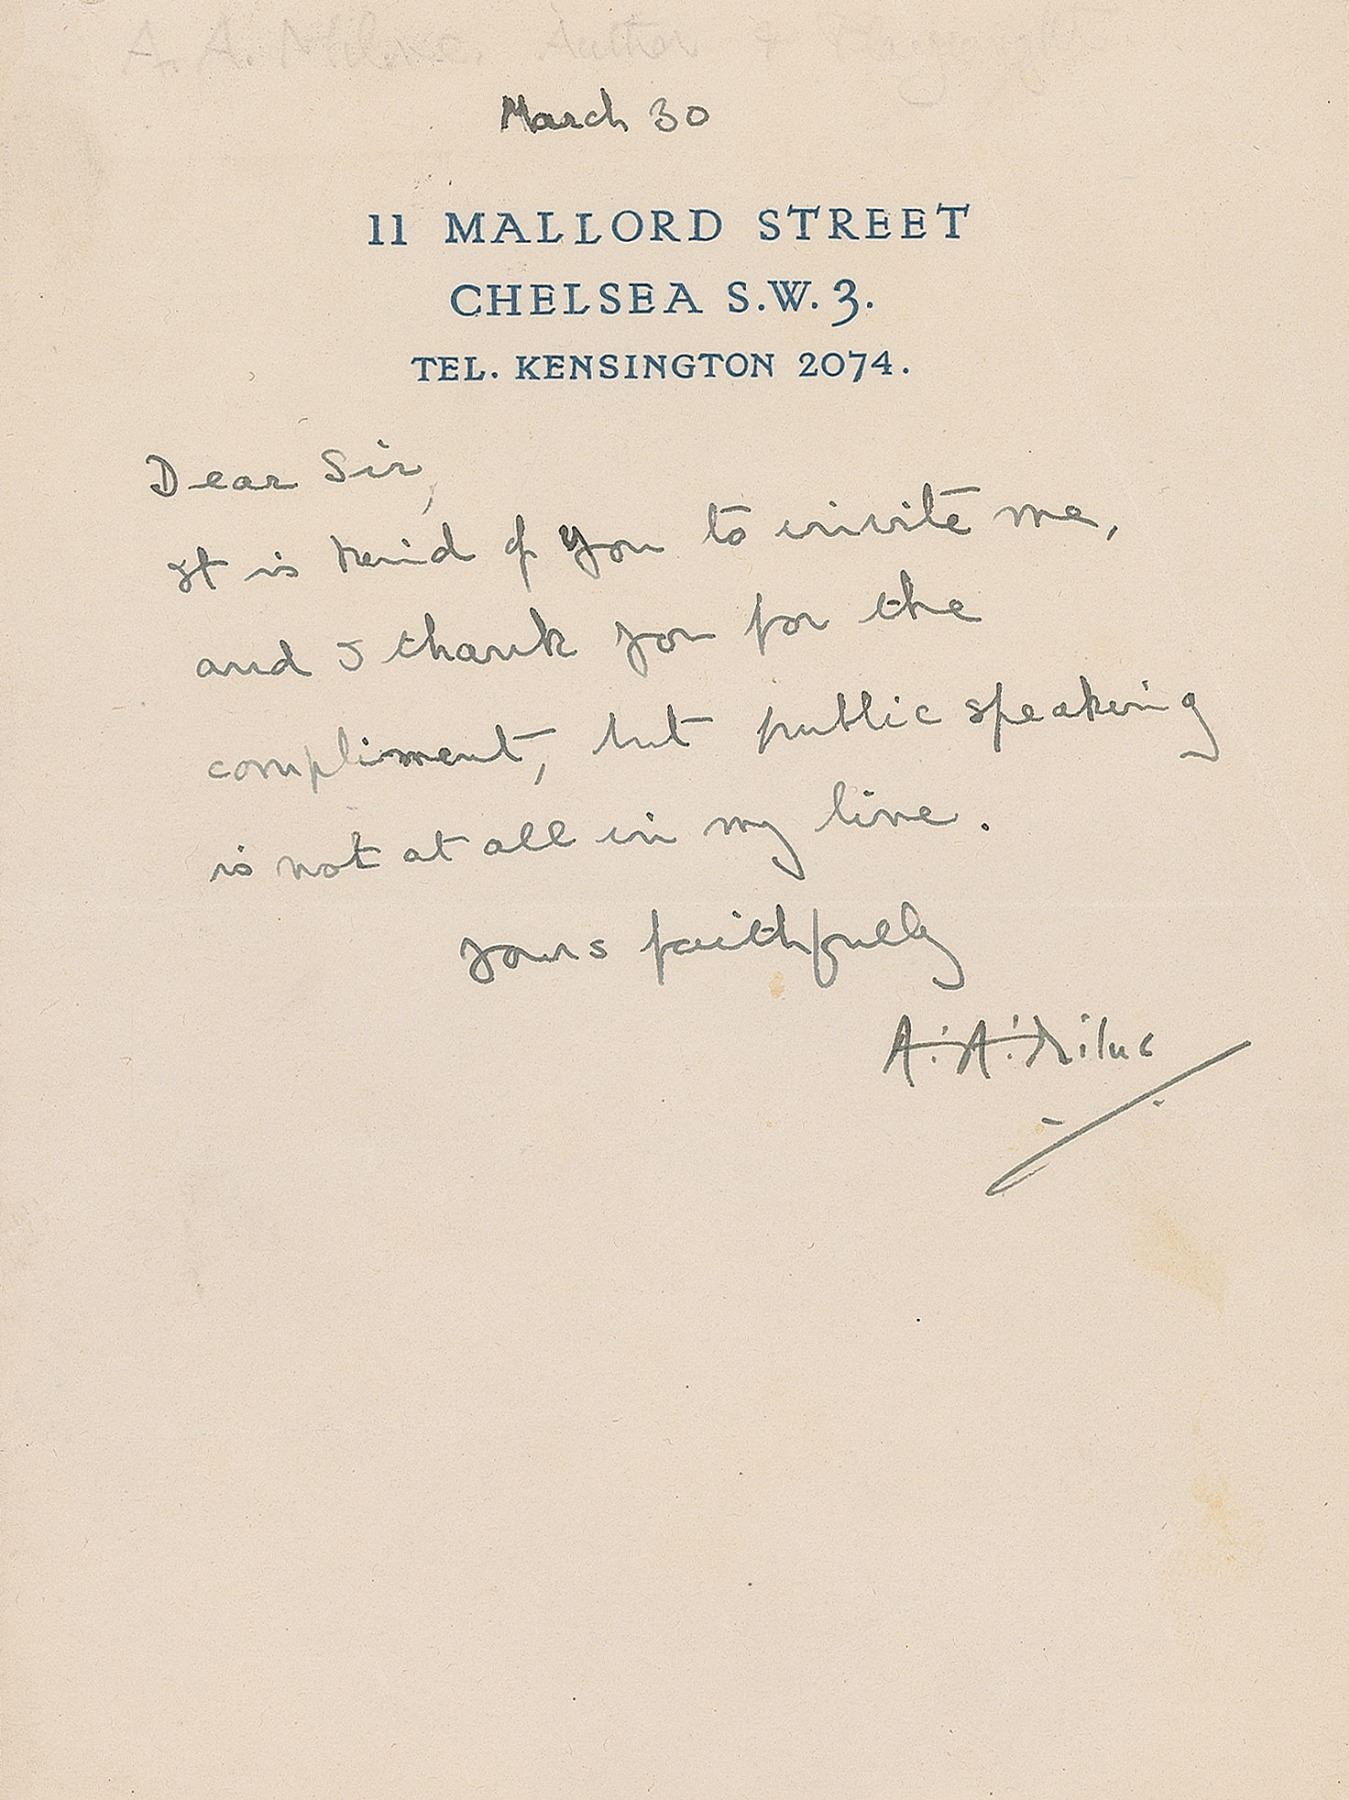 A. A. Milne. Author & Playwright
March 30
11 MALLORD STREET
CHELSEA S.W.3.
TEL. KENSINGTON 2074.
Dear Sir,
It is kind of you to invite me,
and I thank you for the
compliment, but public speaking
is not at all in my line.
Yours faithfully
A.A.Milne